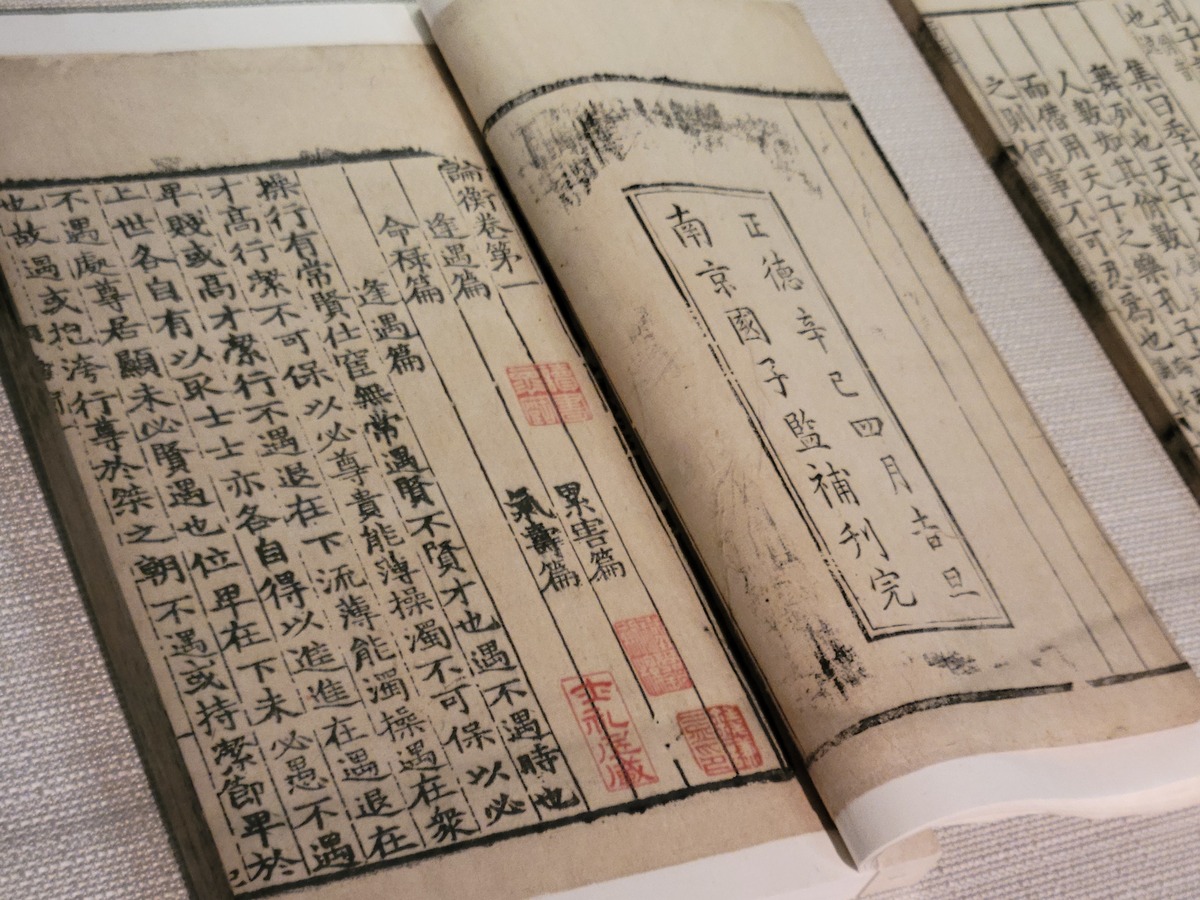 集曰季
舞列也天子
人數如其佾數
而僭用天子之樂孔子
之則何事不可忍爲也
正德辛巳四月吉旦
南京國子監補刊完
論衡卷第一
逢遇篇 累害篇
命祿篇 氣壽篇
逢遇篇
操行有常賢仕宦無常遇賢不賢才也遇不遇時也
才高行潔不可保以必尊貴能薄操濁不可保以必
卑賤或高才潔行不遇退在下流薄能濁操遇在衆
上世各自有以取士士亦各自得以進進在遇退在
不遇處尊居顯未必賢遇也位卑在下未必愚不遇
也故遇或抱洿行尊於桀之朝不遇或持潔節卑於
士禮居藏